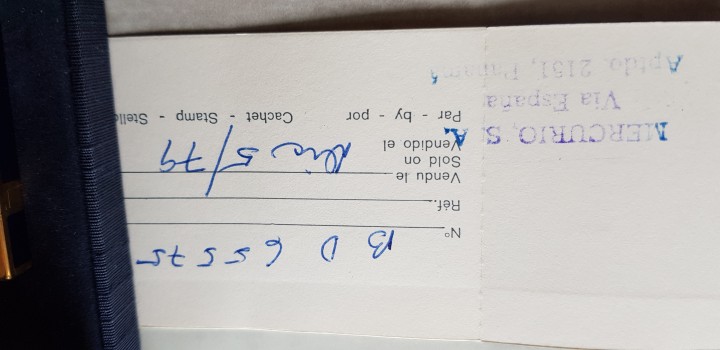 N° BD 65575
Réf.
Vendu le
Sold on
Vendido el Dic 5/79
Par - by - por Cachet - Stamp - Stello
MERCURIO, S. A.
Via España
Apdo. 2151, Panamá